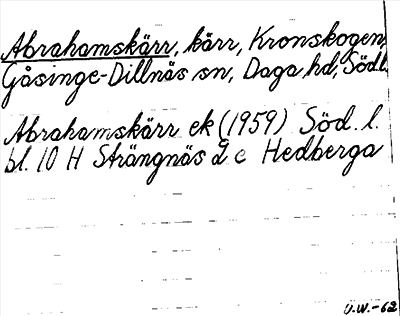 Abrahamskärr, kärr, Kronskogen,
Gåsinge-Dillnäs sn, Daga hd, Södl.
Abrahamskärr ek (1959) Söd. l.
bl. 10 H Strängnäs 2 c Hedberga
U.W.-62